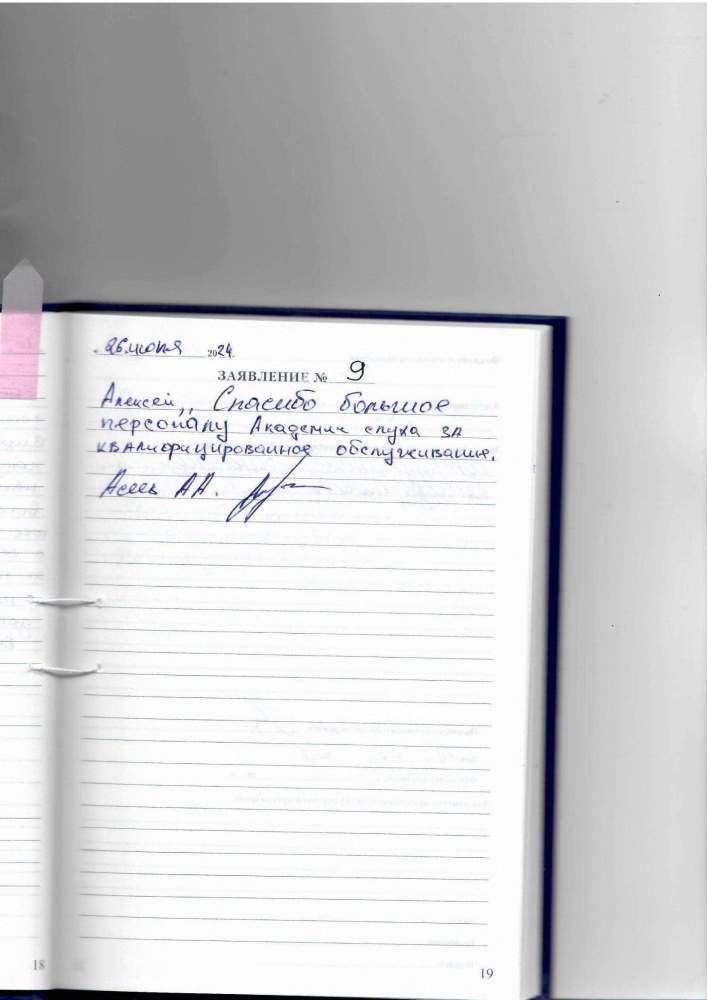 26 июня 2024.
ЗАЯВЛЕНИЕ № 9
Алексей,, Спасибо большое
персоналу Академии слуха за
квалифицированное обслуживание.
Асеев А.А.
18
19